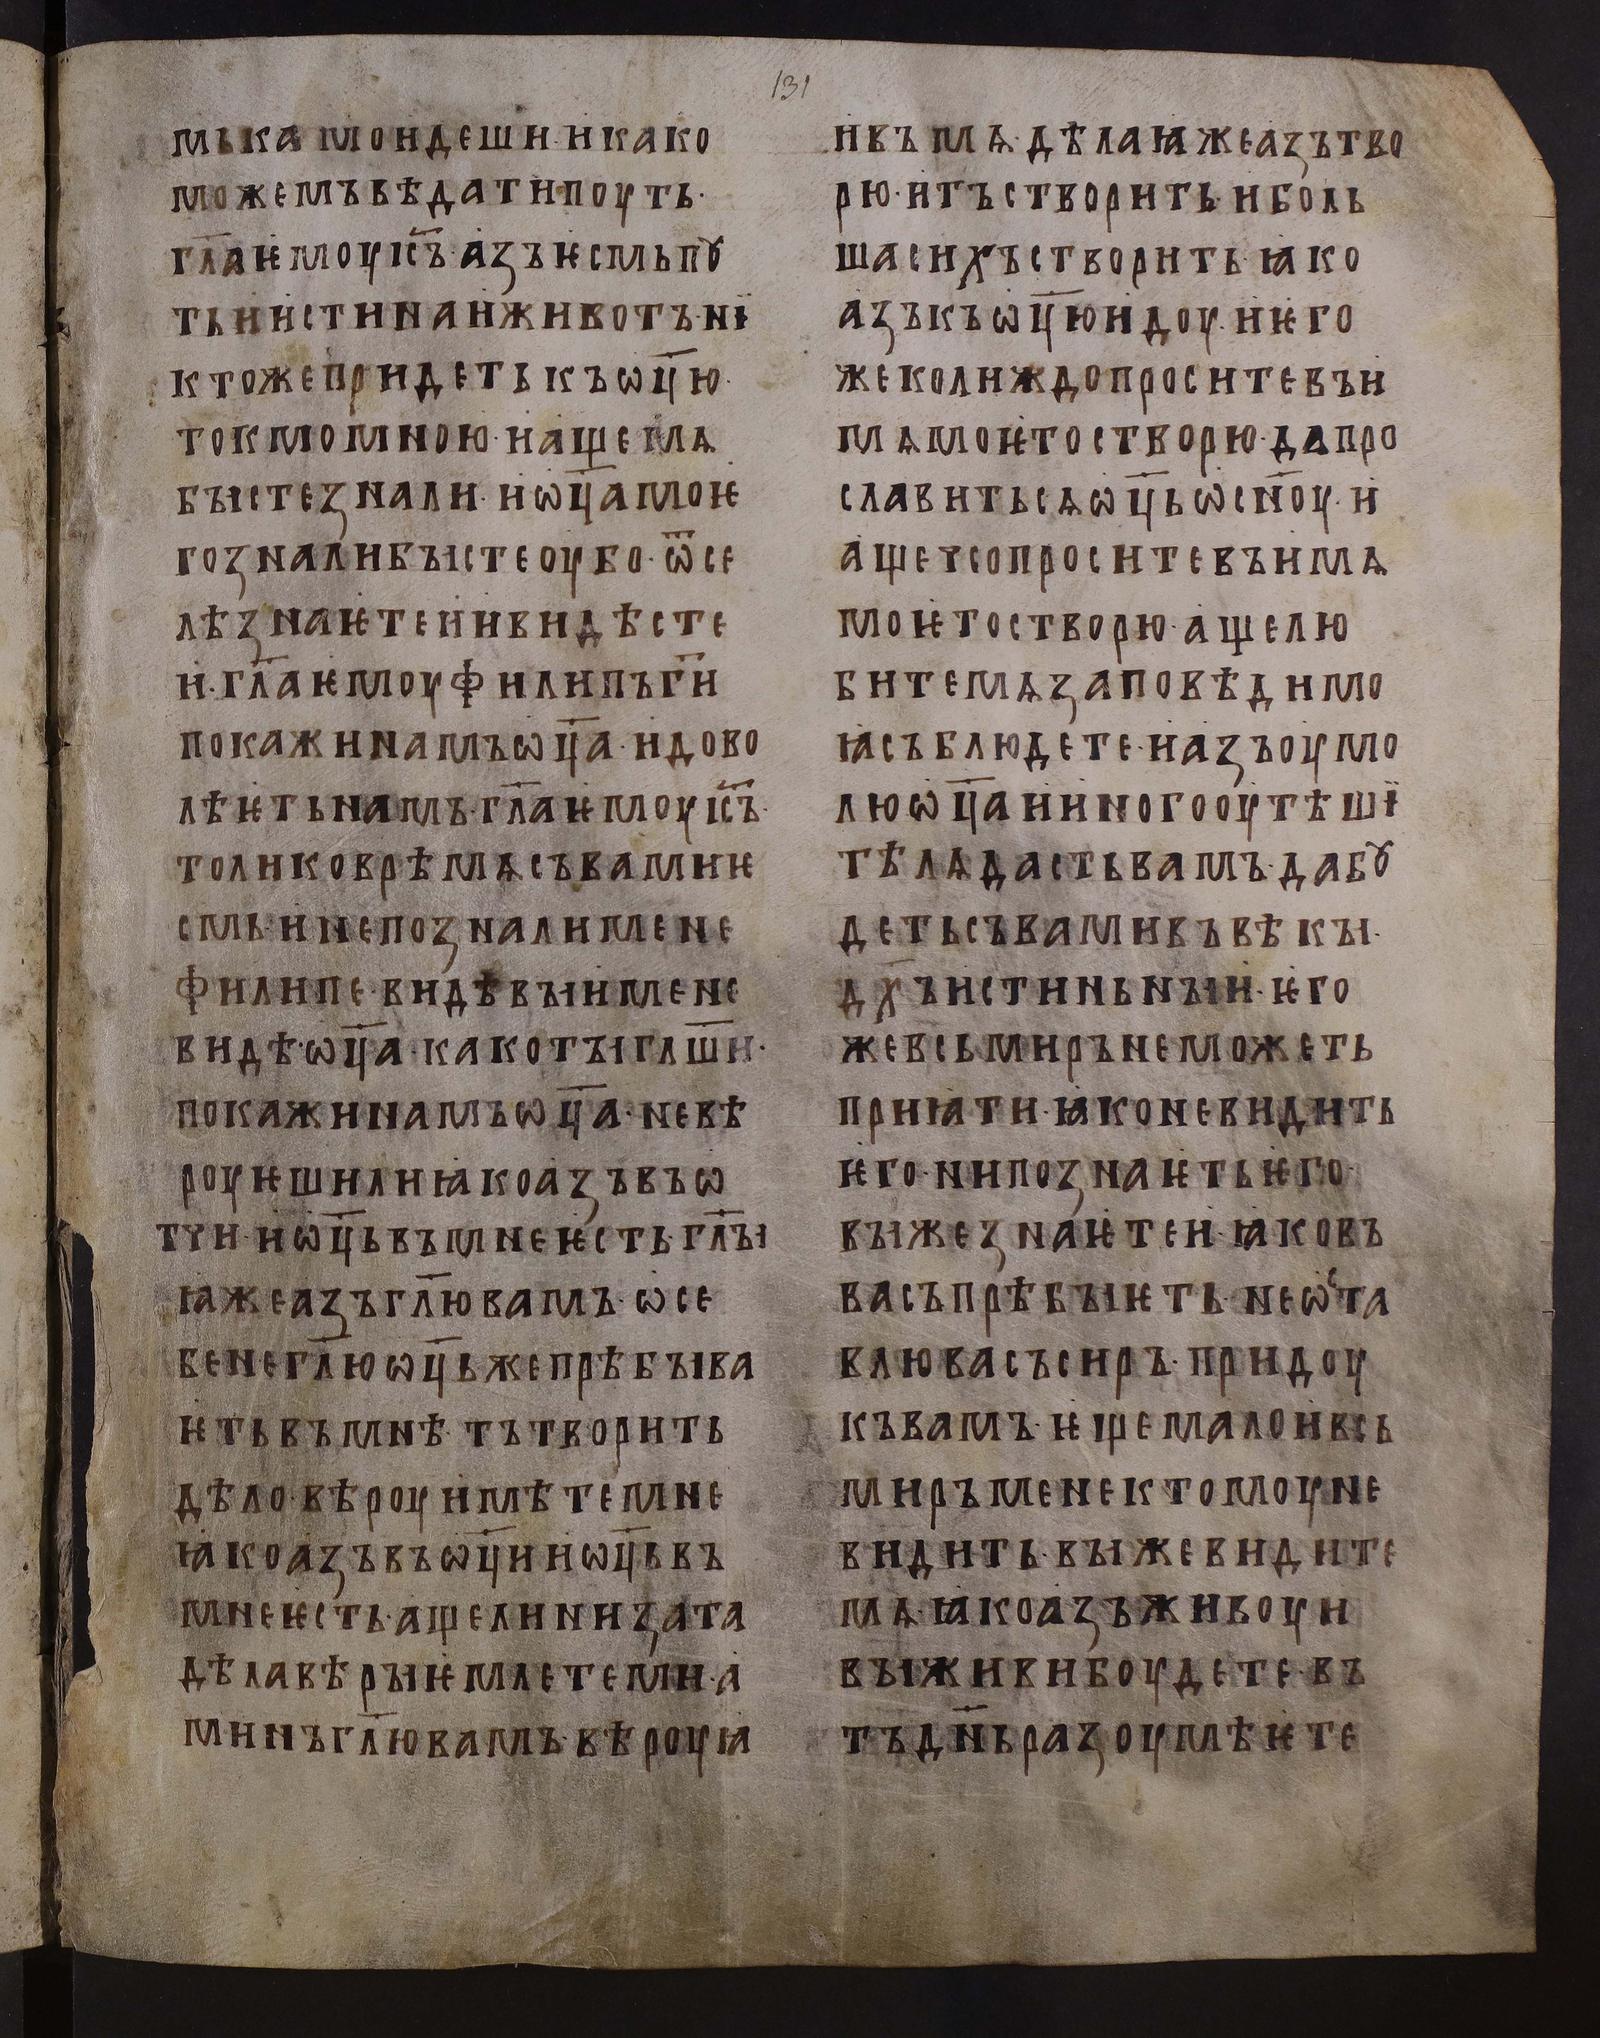 131
мькамоидеши·икако
можемъвѣдатипоуть·
гл҃аѥмоуіс҃ъ·азъѥсмьпꙋ
тьиистинаиживотъ·нї
ктожепридетькъѡц҃ю·
токмомною·иащемѧ
быстезнали·иѡц҃амоѥ
гозналибыстеоубо·ѿсе
лѣзнаѥтеиивидѣсте
и·гл҃аѥмоуфилипъг҃и
покажинамъѡц҃а·идово
лѣѥтьнамъ·гл҃аѥмоуіс҃ъ·
толиковрѣмѧсъвамиѥ
смь·инепозналимене
филипе·видѣвыимене
видѣѡц҃а·какотыглш҃и·
покажинамъѡц҃а·невѣ
роуѥшилиꙗкоазъвъѡ
тчи·иѡц҃ьвъмнеѥсть·гл҃ы
ꙗжеазъгл҃ювамъ·ѡсе
бенегл҃юѡц҃ьжепрѣбыва
ѥтьвъмнѣ·тътворить
дѣло·вѣроуимѣтемне
ꙗкоазъвъѡц҃ииѡц҃ьвъ
мнеѥсть·ащелинизата
дѣлавѣрыѥмлетеми·а
минъгл҃ювамъ·вѣроуꙗ
ивъмѧ·дѣлаꙗжеазътво
рю·итъстворить·иболь
шасихъстворить·ꙗко
азъкъѡц҃юидоу·иѥго
жеколиждопроситевъи
мѧмоѥтостворю·дапро
славитьсѧѡц҃ьѡсн҃оу·и
ащечсопроситевъимѧ
моѥтостворю·ащелю
битемѧзаповѣдимо
ꙗсъблюдете·иазъоумо
люѡц҃аииногооутѣшї
тѣлѧдастьвамъ·дабꙋ
детьсъвамивъвѣкы·
дх҃ъистиньныи·ѥго
жевсьмирънеможеть
приꙗти·ꙗконевидить
ѥго·нипознаѥтьѥго·
выжезнаѥтеи·ꙗковъ
васъпрѣбыѥть·неѡⷭта
влювасъсиръ·придоу
къвамъ·ѥщемалоивсь
миръменектомоуне
видить·выжевидите
мѧ·ꙗкоазъживоуи
выживибоудете·въ
тъдн҃ьразоумѣѥте